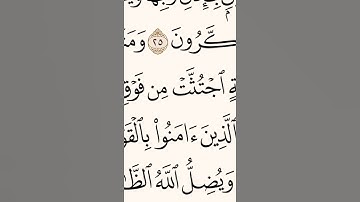 كَّرُونَ ٢٥ وَمَ
ةٍ ٱجْتُثَّتْ مِن فَوْقِ
ٱلَّذِينَ ءَامَنُوا۟ بِٱلْقَوْ
وَيُضِلُّ ٱللَّهُ ٱلظَّ